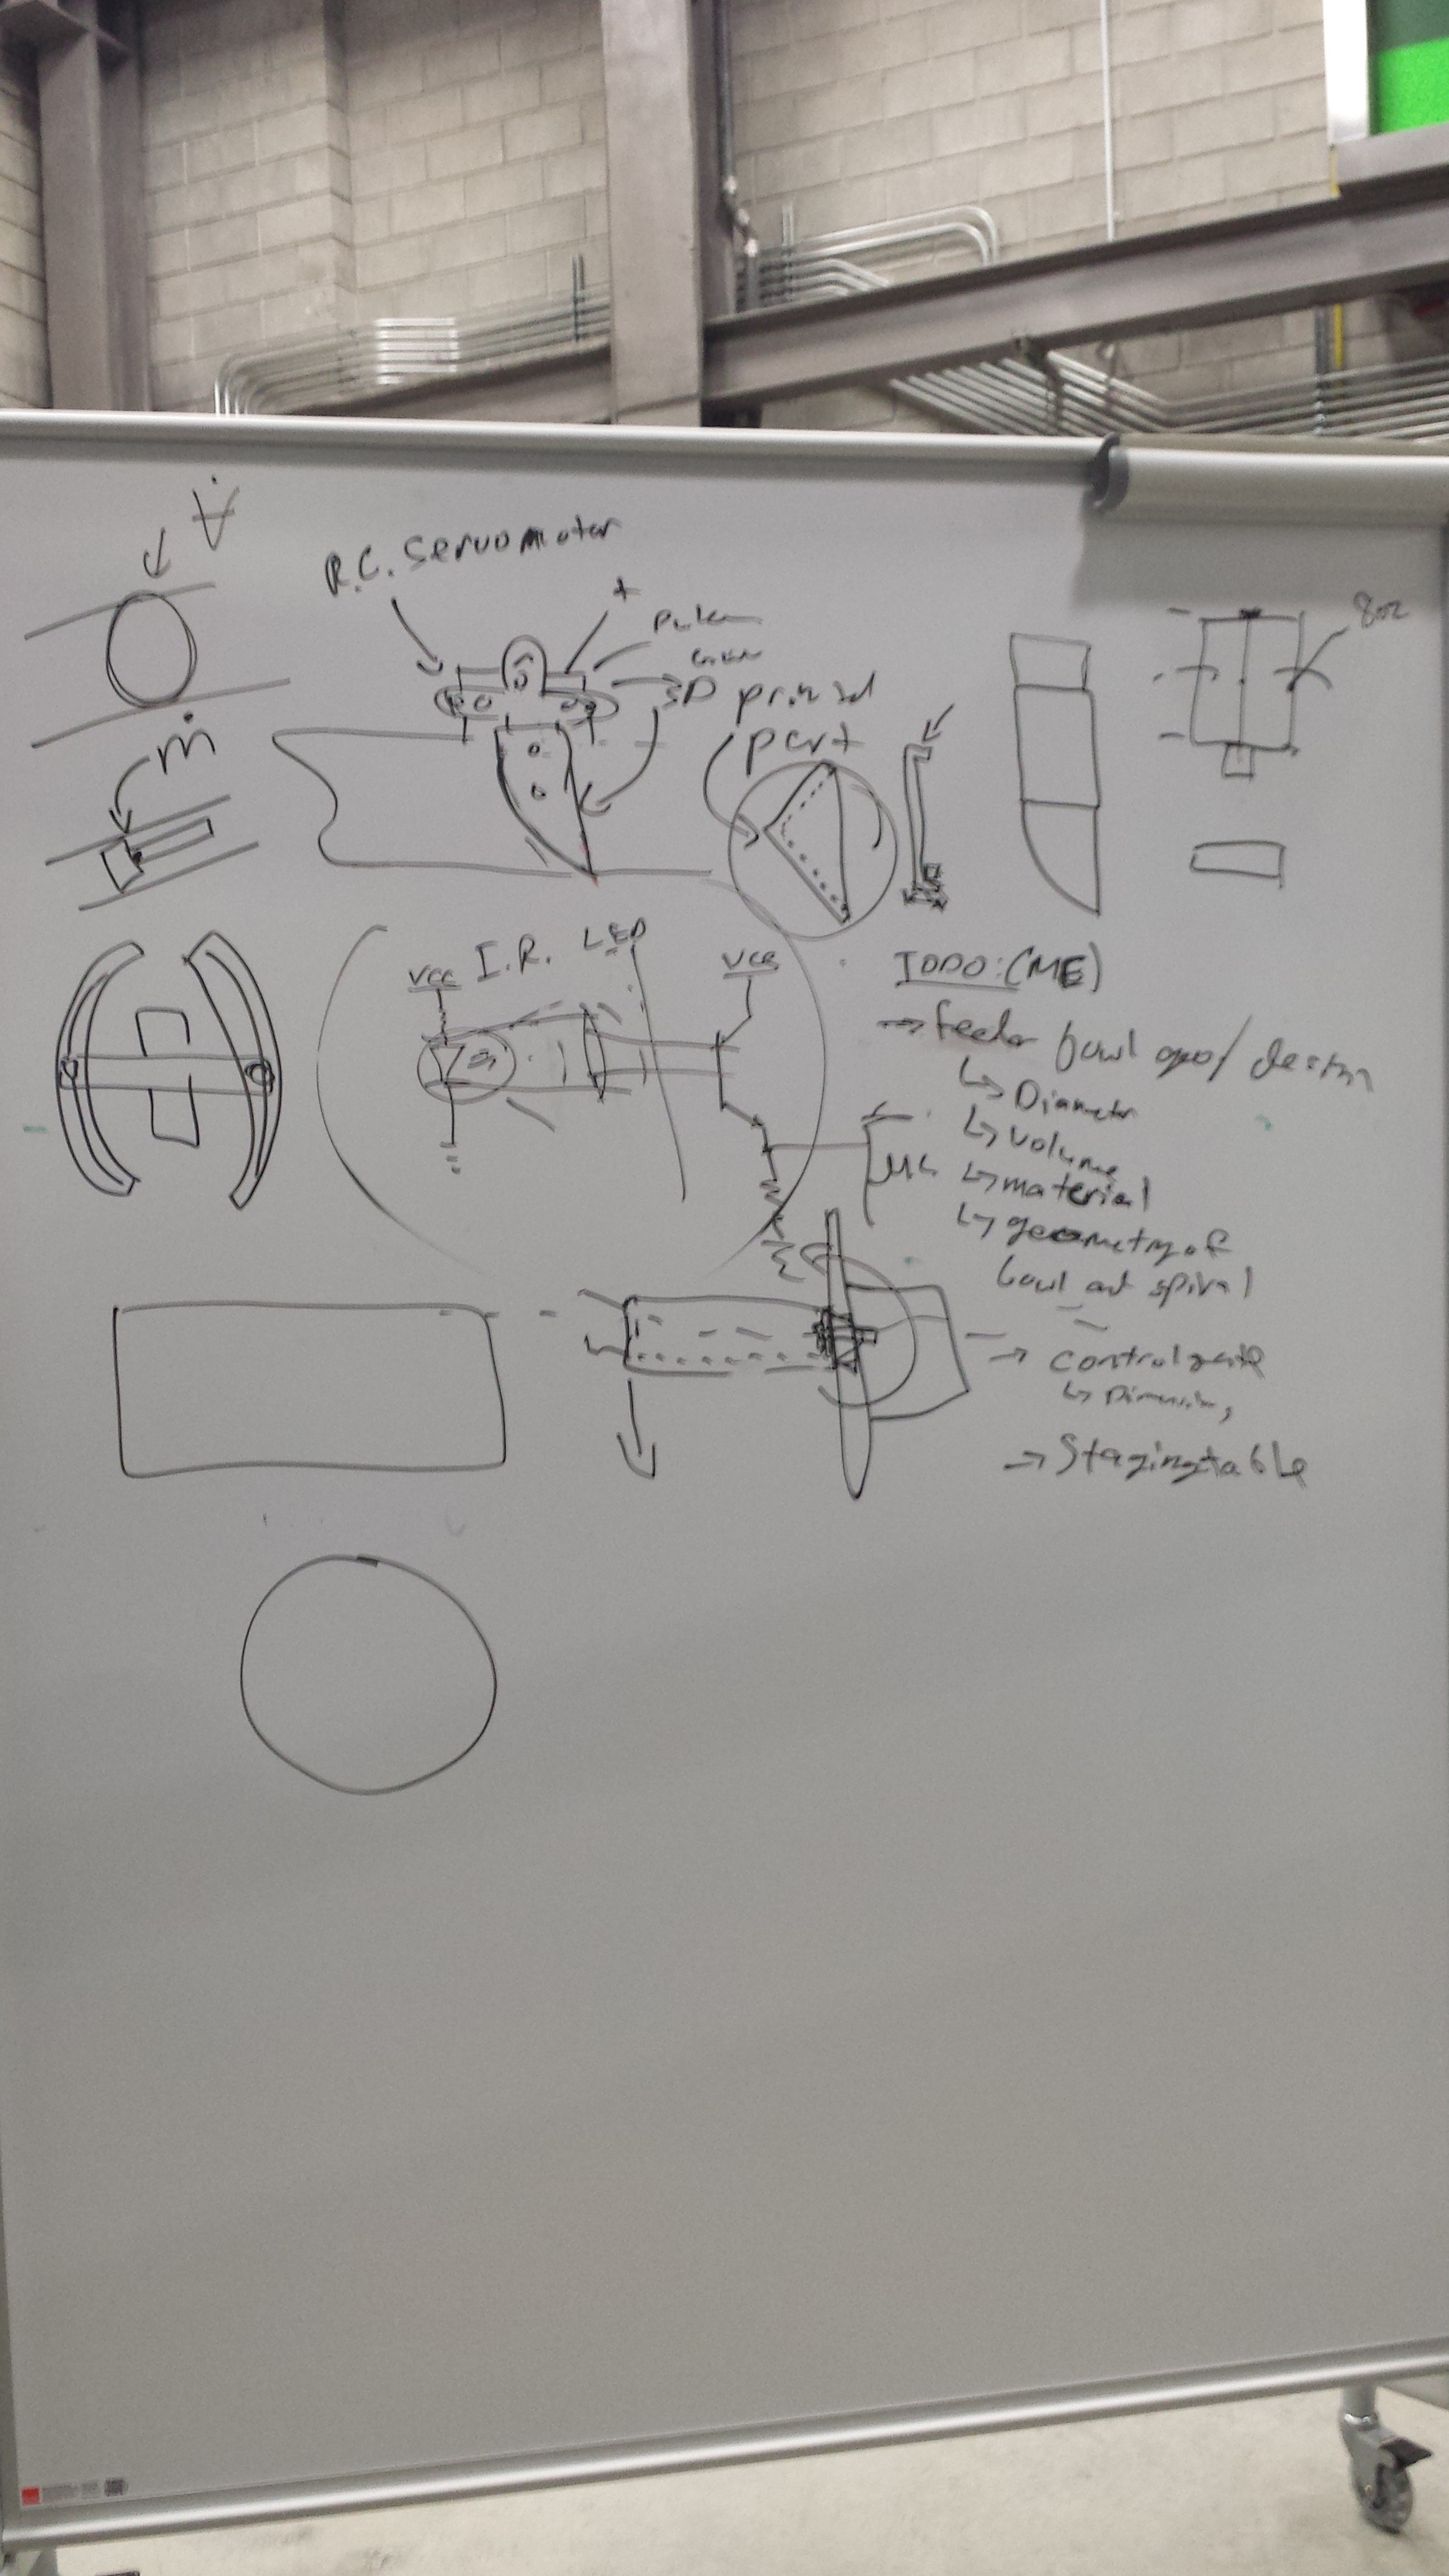 V̇
R.C. Servo motor
+
3D printed
part
ṁ
8oz
I.R. LED
Vcc
Vcc
TODO: (ME)
→ feeder bowl / design
↳ Diameter
↳ volume
↳ material
↳ geometry of
bowl and spiral
→ control gate
↳ Dimension,
→ Staging table